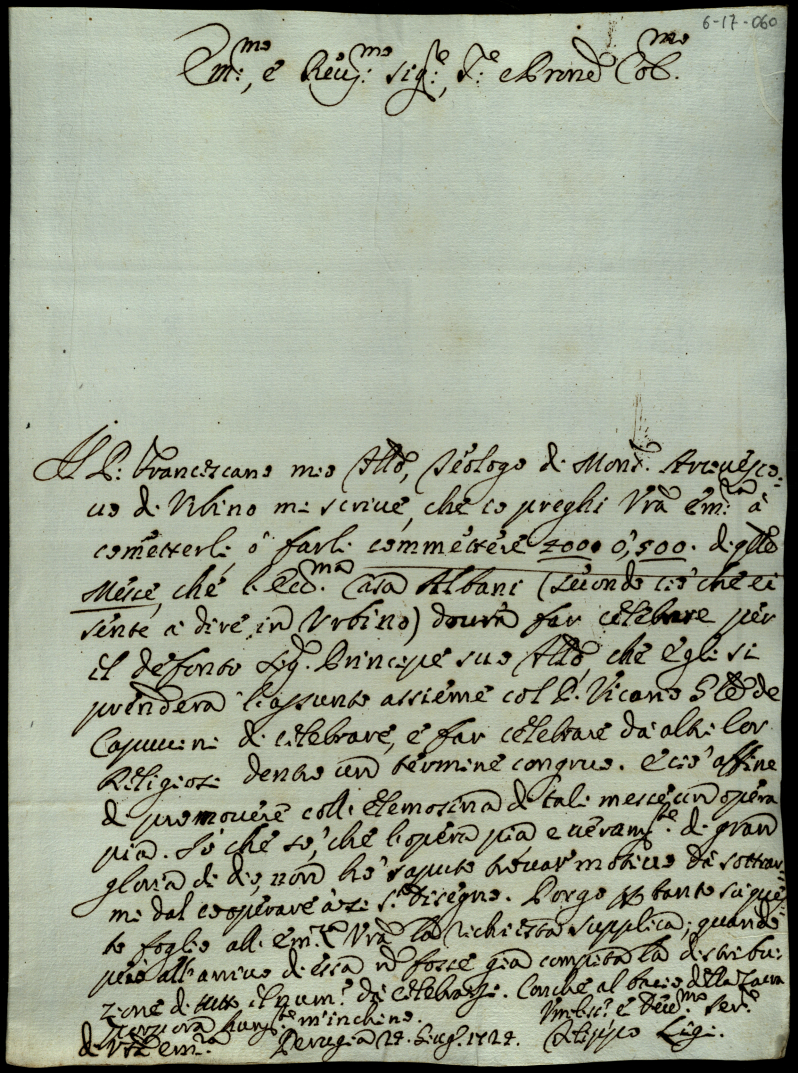 6-17-060
Em:mo, e Reu:mo Sig:re, S:re e Prone Col.mo
Il P: Francescano mio Atto, Teologo di Mons:r Arciuesco:
uo di Vrbino mi scriue, che io preghi Vra Em:za à
cometterli, ò farli commettere 4000 ò, 500. di qlle
Messe, che l'Ecc:ma Casa Albani (secondo ciò che ei
sente a dire in Vrbino) dourà far celebrare per
il defonto Sig:r Principe suo che egli si
prenderà l'assunto assieme col P: Vicario Gle de
Capuccini di celebrare, e far celebrare da altri lor
Religiosi dentro un termine congruo. E ciò affine
di promouere coll'elemosina di tali messe un opera
pia. Io che sò, che l'opera pia e ueram:te di gran
gloria di dio, non hò saputo trouar motiuo da sottrar:
mi dal cooperare à sì s:to disegno. Porgo p tanto sù que:
to foglio all'Em:za Vra la richiesta supplica; quando
però all'arriuo di essa n fosse già compita la distribu:
zione di tutto il num:o da celebrarsi. Con che al bacio della Sacra
Porpora hum:te m'inchino.
di Vra Em:za Perugia 24. Lug. 1724.
Vmiliss:o e Deu:mo Ser:e
Filippo Ligi.